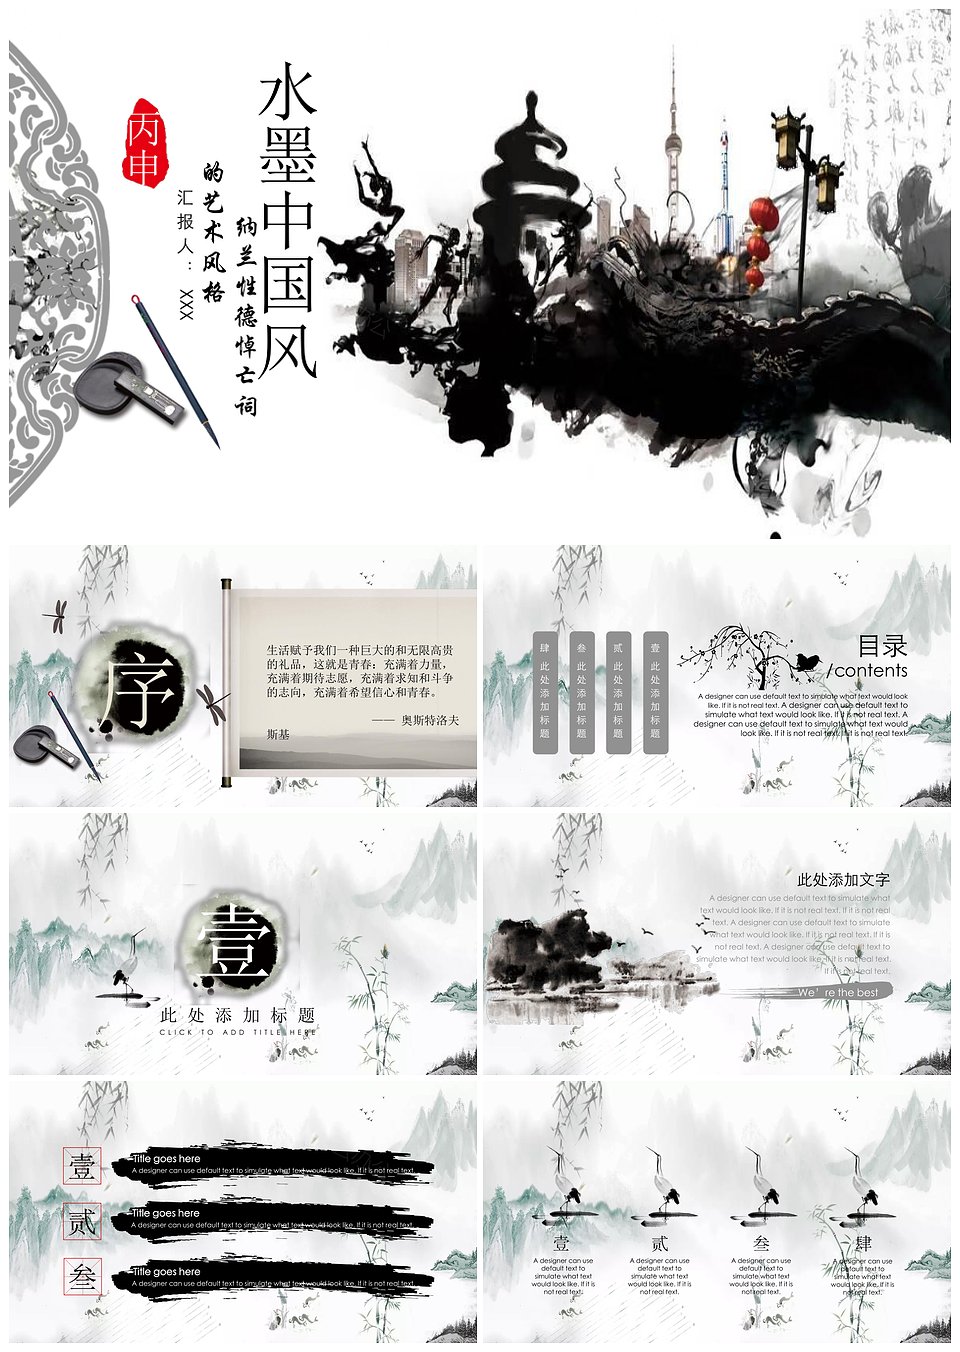 水墨中国风
纳兰性德悼亡词
的艺术风格
汇报人：XXX
丙申
序
生活赋予我们一种巨大的和无限高贵
的礼品，这就是青春：充满着力量，
充满着期待志愿，充满着求知和斗争
的志向，充满着希望信心和青春。
—— 奥斯特洛夫
斯基
目录
/contents
A designer can use default text to simulate what text would look
like. If it is not real text. A designer can use default text to
simulate what text would look like. If it is not real text. A
designer can use default text to simulate what text would look
like. If it is not real text. If it is not real text.
壹 此处添加标题
贰 此处添加标题
叁 此处添加标题
肆 此处添加标题
壹
此处添加标题
CLICK TO ADD TITLE HERE
此处添加文字
A designer can use default text to simulate what
text would look like. If it is not real text. If it is not real
text. A designer can use default text to simulate
what text would look like. If it is not real text. If it is
not real text. A designer can use default text to
simulate what text would look like. If it is not real text.
If it is not real text.
We're the best
壹
Title goes here
A designer can use default text to simulate what text would look like. If it is not real text.
贰
Title goes here
A designer can use default text to simulate what text would look like. If it is not real text.
叁
Title goes here
A designer can use default text to simulate what text would look like. If it is not real text.
壹
A designer can use
default text to
simulate what text
would look like. If it is
not real text.
贰
A designer can use
default text to
simulate what text
would look like. If it is
not real text.
叁
A designer can use
default text to
simulate what text
would look like. If it is
not real text.
肆
A designer can use
default text to
simulate what text
would look like. If it is
not real text.